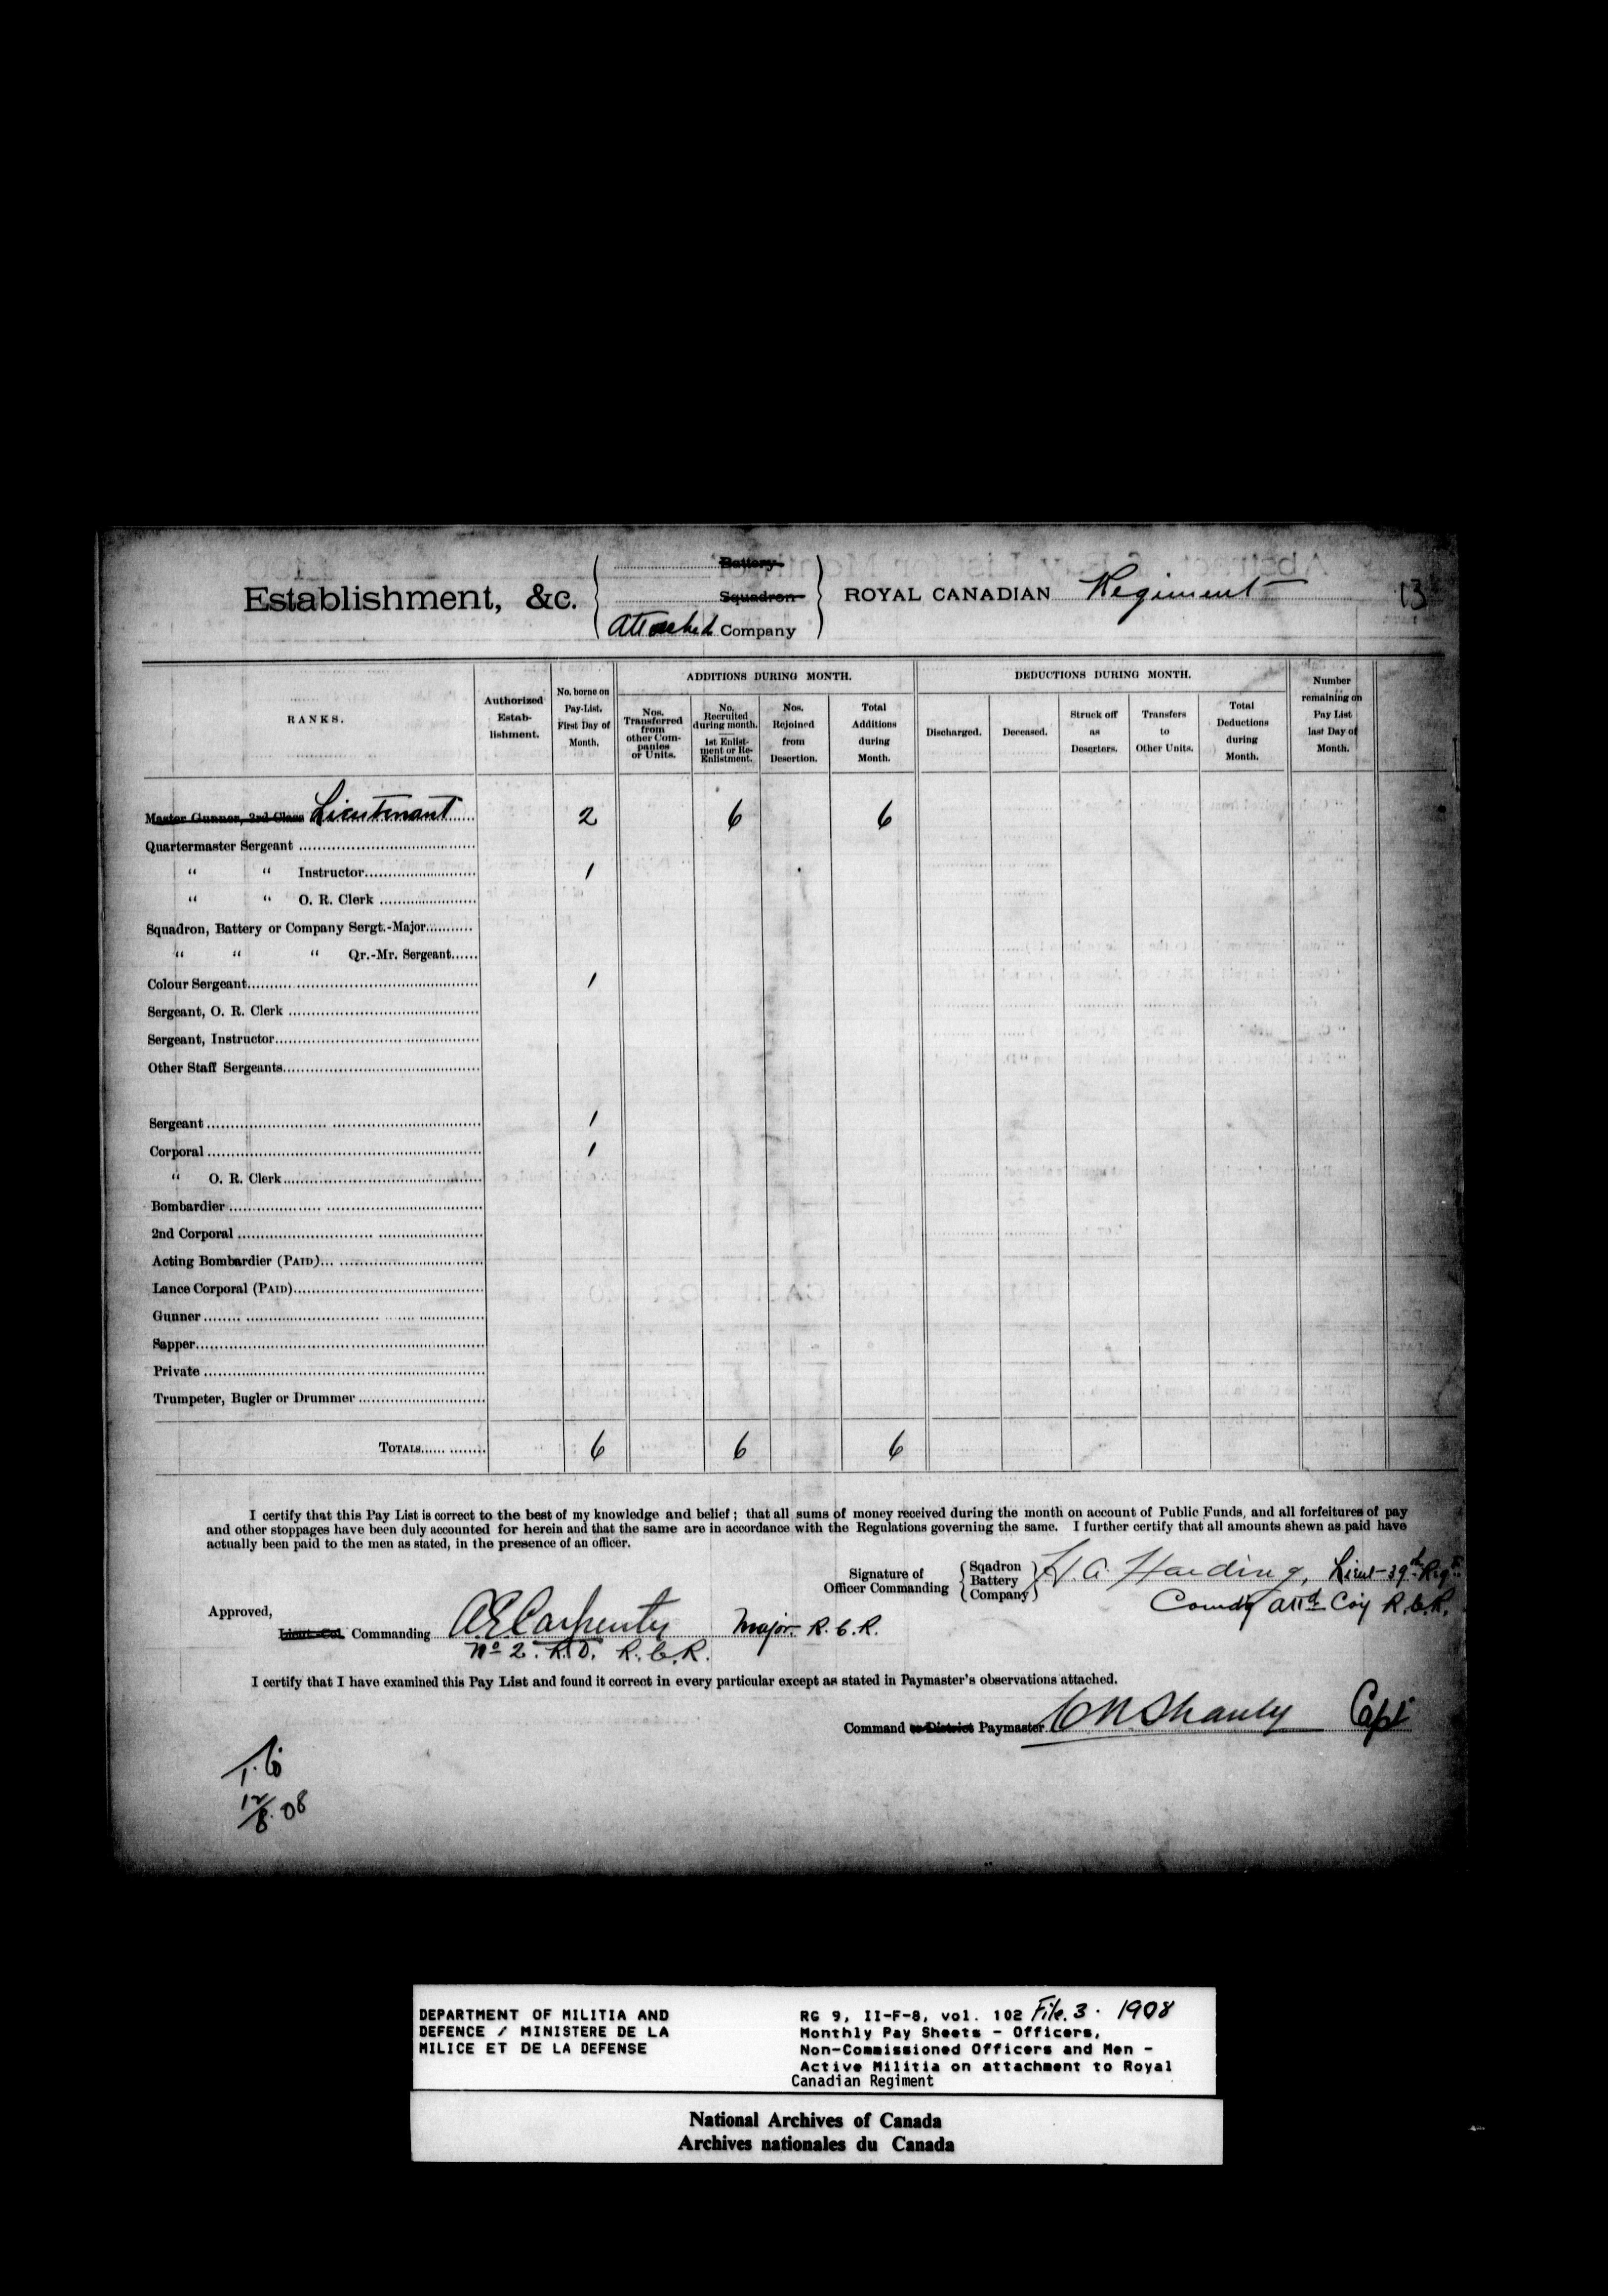 Battery
Establishment, &c. Squadron ROYAL CANADIAN Regiment 13
Attached Company
RANKS.
Authorized Estab-lishment.
No. borne on Pay-List. First Day of Month.
ADDITIONS DURING MONTH.
Nos. Transferred from other Com-panies or Units.
No. Recruited during month. 1st Enlist-ment or Re-Enlistment.
Nos. Rejoined from Desertion.
Total Additions during Month.
DEDUCTIONS DURING MONTH.
Discharged.
Deceased.
Struck off as Deserters.
Transfers to Other Units.
Total Deductions during Month.
Number remaining on Pay List last Day of Month.
Master Gunner, 3rd Class Lieutenant 2 6 6
Quartermaster Sergeant
“ “ Instructor 1
“ “ O. R. Clerk
Squadron, Battery or Company Sergt.-Major
“ “ “ Qr.-Mr. Sergeant
Colour Sergeant 1
Sergeant, O. R. Clerk
Sergeant, Instructor
Other Staff Sergeants
Sergeant 1
Corporal 1
“ O. R. Clerk
Bombardier
2nd Corporal
Acting Bombardier (PAID)
Lance Corporal (PAID)
Gunner
Sapper
Private
Trumpeter, Bugler or Drummer
TOTALS 6 6 6
I certify that this Pay List is correct to the best of my knowledge and belief; that all sums of money received during the month on account of Public Funds, and all forfeitures of pay
and other stoppages have been duly accounted for herein and that the same are in accordance with the Regulations governing the same. I further certify that all amounts shewn as paid have
actually been paid to the men as stated, in the presence of an officer.
Signature of Officer Commanding Sqadron Battery Company H. A. Harding, Lieut 39th Regt
Comdg attd Coy R.C.R.
Approved,
Lieut.-Col. Commanding A E Carpenter Major R.C.R.
No 2. R.D. R.C.R.
I certify that I have examined this Pay List and found it correct in every particular except as stated in Paymaster's observations attached.
Command or District Paymaster C N Shanly Capt
12/8.08
DEPARTMENT OF MILITIA AND
DEFENCE / MINISTERE DE LA
MILICE ET DE LA DEFENSE
RG 9, II-F-8, vol. 102 File. 3. 1908
Monthly Pay Sheets - Officers,
Non-Commissioned Officers and Men -
Active Militia on attachment to Royal
Canadian Regiment
National Archives of Canada
Archives nationales du Canada